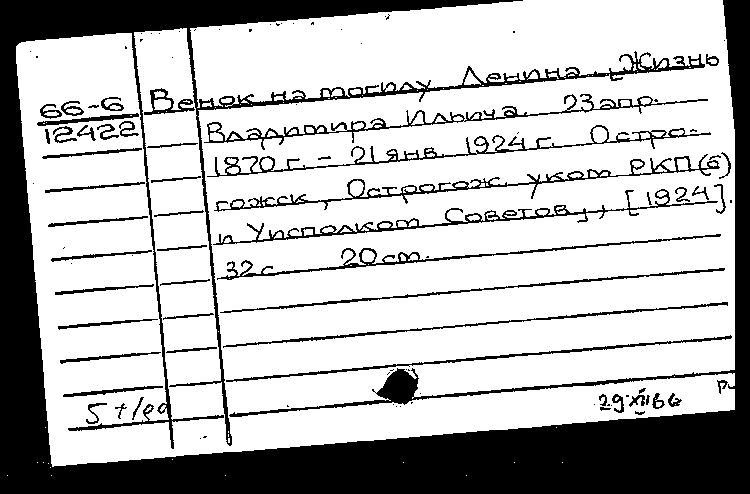 66-6
12422
Венок на могилу Ленина. [Жизнь
Владимира Ильича. 23 апр.
1870 г. - 21 янв. 1924 г. Остро-
гожск, Острогож. уком РКП(б)
и Уисполком Советов, [1924].
32 с. 20 см.
29 XII 66